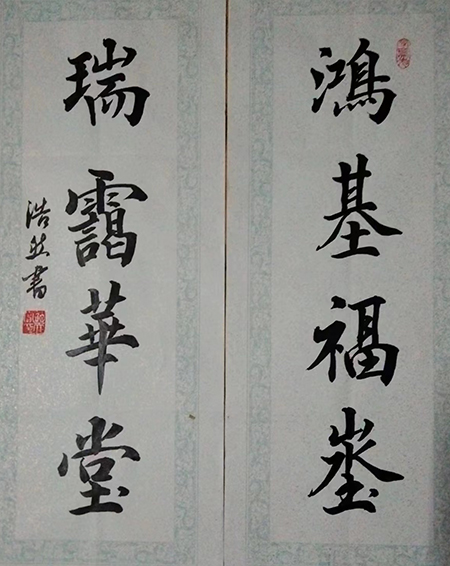 鴻基福埊
瑞靄華堂
浩然書